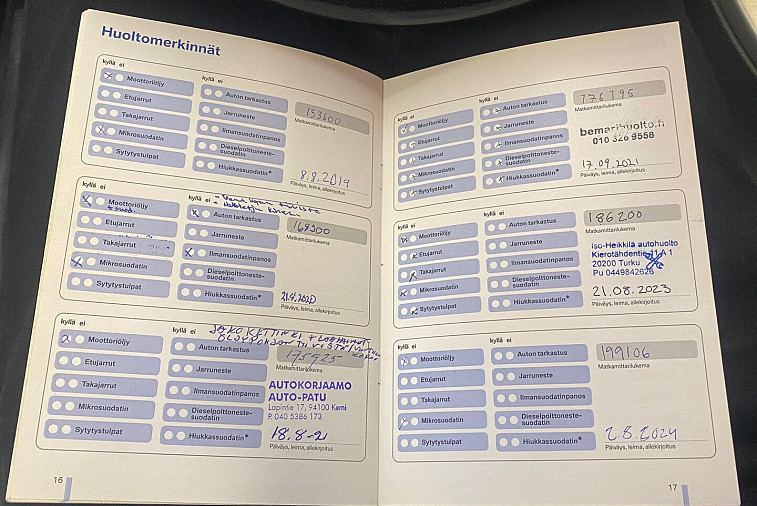 Huoltomerkinnät
kyllä ei
kyllä ei
Moottoriöljy
Auton tarkastus
Etujarrut
Jarruneste
Takajarrut
Ilmansuodatinpanos
Mikrosuodatin
Dieselpolttoneste-
suodatin
Sytytystulpat
Hiukkassuodatin*
153600
Matkamittarilukema
8.8.2019
Päiväys, leima, allekirjoitus
kyllä ei
kyllä ei
Moottoriöljy
Auton tarkastus
Etujarrut
Jarruneste
Takajarrut
Ilmansuodatinpanos
Mikrosuodatin
Dieselpolttoneste-
suodatin
Sytytystulpat
Hiukkassuodatin*
Matkamittarilukema
21.4.2020
Päiväys, leima, allekirjoitus
kyllä ei
kyllä ei
JAKOKETJU
Moottoriöljy
Auton tarkastus
Etujarrut
Jarruneste
Takajarrut
Ilmansuodatinpanos
Mikrosuodatin
Dieselpolttoneste-
suodatin
Sytytystulpat
Hiukkassuodatin*
175925
AUTOKORJAAMO
AUTO-PATU
Lapintie 17, 94100 Kemi
P. 040 5386 173
18.8-21
Päiväys, leima, allekirjoitus
16
kyllä ei
kyllä ei
Moottoriöljy
Auton tarkastus
Etujarrut
Jarruneste
Takajarrut
Ilmansuodatinpanos
Mikrosuodatin
Dieselpolttoneste-
suodatin
Sytytystulpat
Hiukkassuodatin*
Matkamittarilukema
bemarihuolto.fi
010 326 9558
17.09.2021
Päiväys, leima, allekirjoitus
kyllä ei
kyllä ei
Moottoriöljy
Auton tarkastus
Etujarrut
Jarruneste
Takajarrut
Ilmansuodatinpanos
Mikrosuodatin
Dieselpolttoneste-
suodatin
Sytytystulpat
Hiukkassuodatin*
186200
Matkamittarilukema
Iso-Heikkilä autohuolto
Kierotähdentie 11 A 1
20200 Turku
Pu 0449842626
21.08.2023
Päiväys, leima, allekirjoitus
kyllä ei
kyllä ei
Moottoriöljy
Auton tarkastus
Etujarrut
Jarruneste
Takajarrut
Ilmansuodatinpanos
Mikrosuodatin
Dieselpolttoneste-
suodatin
Sytytystulpat
Hiukkassuodatin*
199106
Matkamittarilukema
2.8.2024
Päiväys, leima, allekirjoitus
17